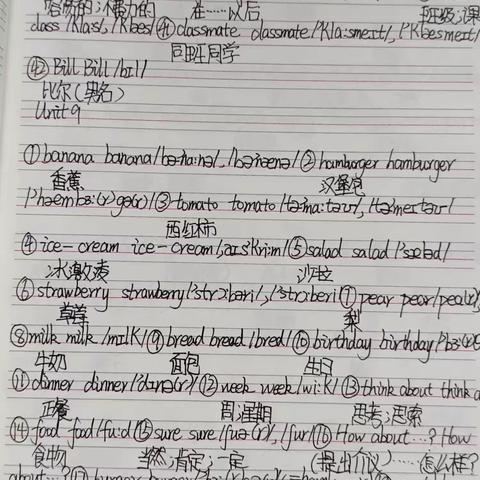 浪费的 在……以后 班级;课
class /klaːs/, /klæs/ ㊶ classmate classmate /'klaːsmeɪt/, /'klæsmeɪt/
同班同学
㊷ Bill Bill /bɪl/
比尔(男名)
Unit 9
① banana banana /bəˈnaːnə/, /bəˈnænə/ ② hamburger hamburger
香蕉 汉堡包
/'hæmbɜː(r)gə(r)/ ③ tomato tomato /təˈmaːtəʊ/, /təˈmeɪtəʊ/
西红柿
④ ice-cream ice-cream /ˌaɪsˈkriːm/ ⑤ salad salad /'sæləd/
冰激凌 沙拉
⑥ strawberry strawberry /'strɔːbəri/, /'strɔːberi/ ⑦ pear pear /peə(r)/,
草莓 梨
⑧ milk milk /mɪlk/ ⑨ bread bread /bred/ ⑩ birthday birthday /'bɜː(r)θ
牛奶 面包 生日
⑪ dinner dinner /'dɪnə(r)/ ⑫ week week /wiːk/ ⑬ think about think a
正餐 周;星期 思考;思索
⑭ food food /fuːd/ ⑮ sure sure /ʃʊə(r)/, /ʃʊr/ ⑯ How about…? How
食物 当然;肯定;一定 (提出介议)……怎么样?
about…?